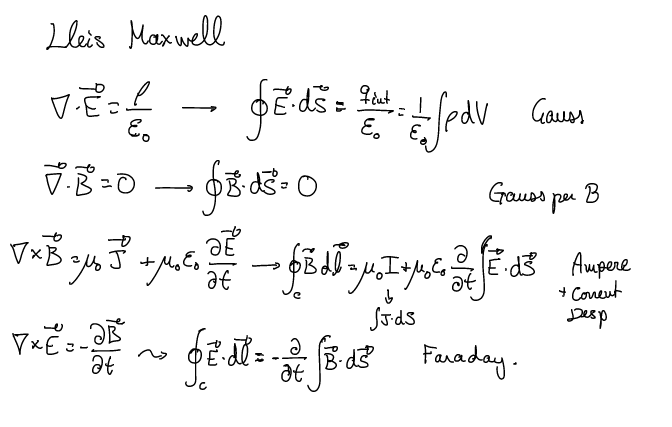 Lleis Maxwell
∇·E⃗ = ρ/ε₀ → ∮E⃗·dS⃗ = q_int/ε₀ = 1/ε₀ ∫ρdV Gauss
∇⃗·B⃗ = 0 → ∮B⃗·dS⃗ = 0 Gauss per B
∇×B⃗ = μ₀ J⃗ + μ₀ε₀ ∂E⃗/∂t → ∮_c B⃗ dl⃗ = μ₀ I + μ₀ε₀ ∂/∂t ∫E⃗·dS⃗ Ampere
↓ + Corrent
∫J·dS Desp
∇×E⃗ = -∂B⃗/∂t ⤳ ∮_c E⃗·dl⃗ = -∂/∂t ∫B⃗·dS⃗ Faraday.